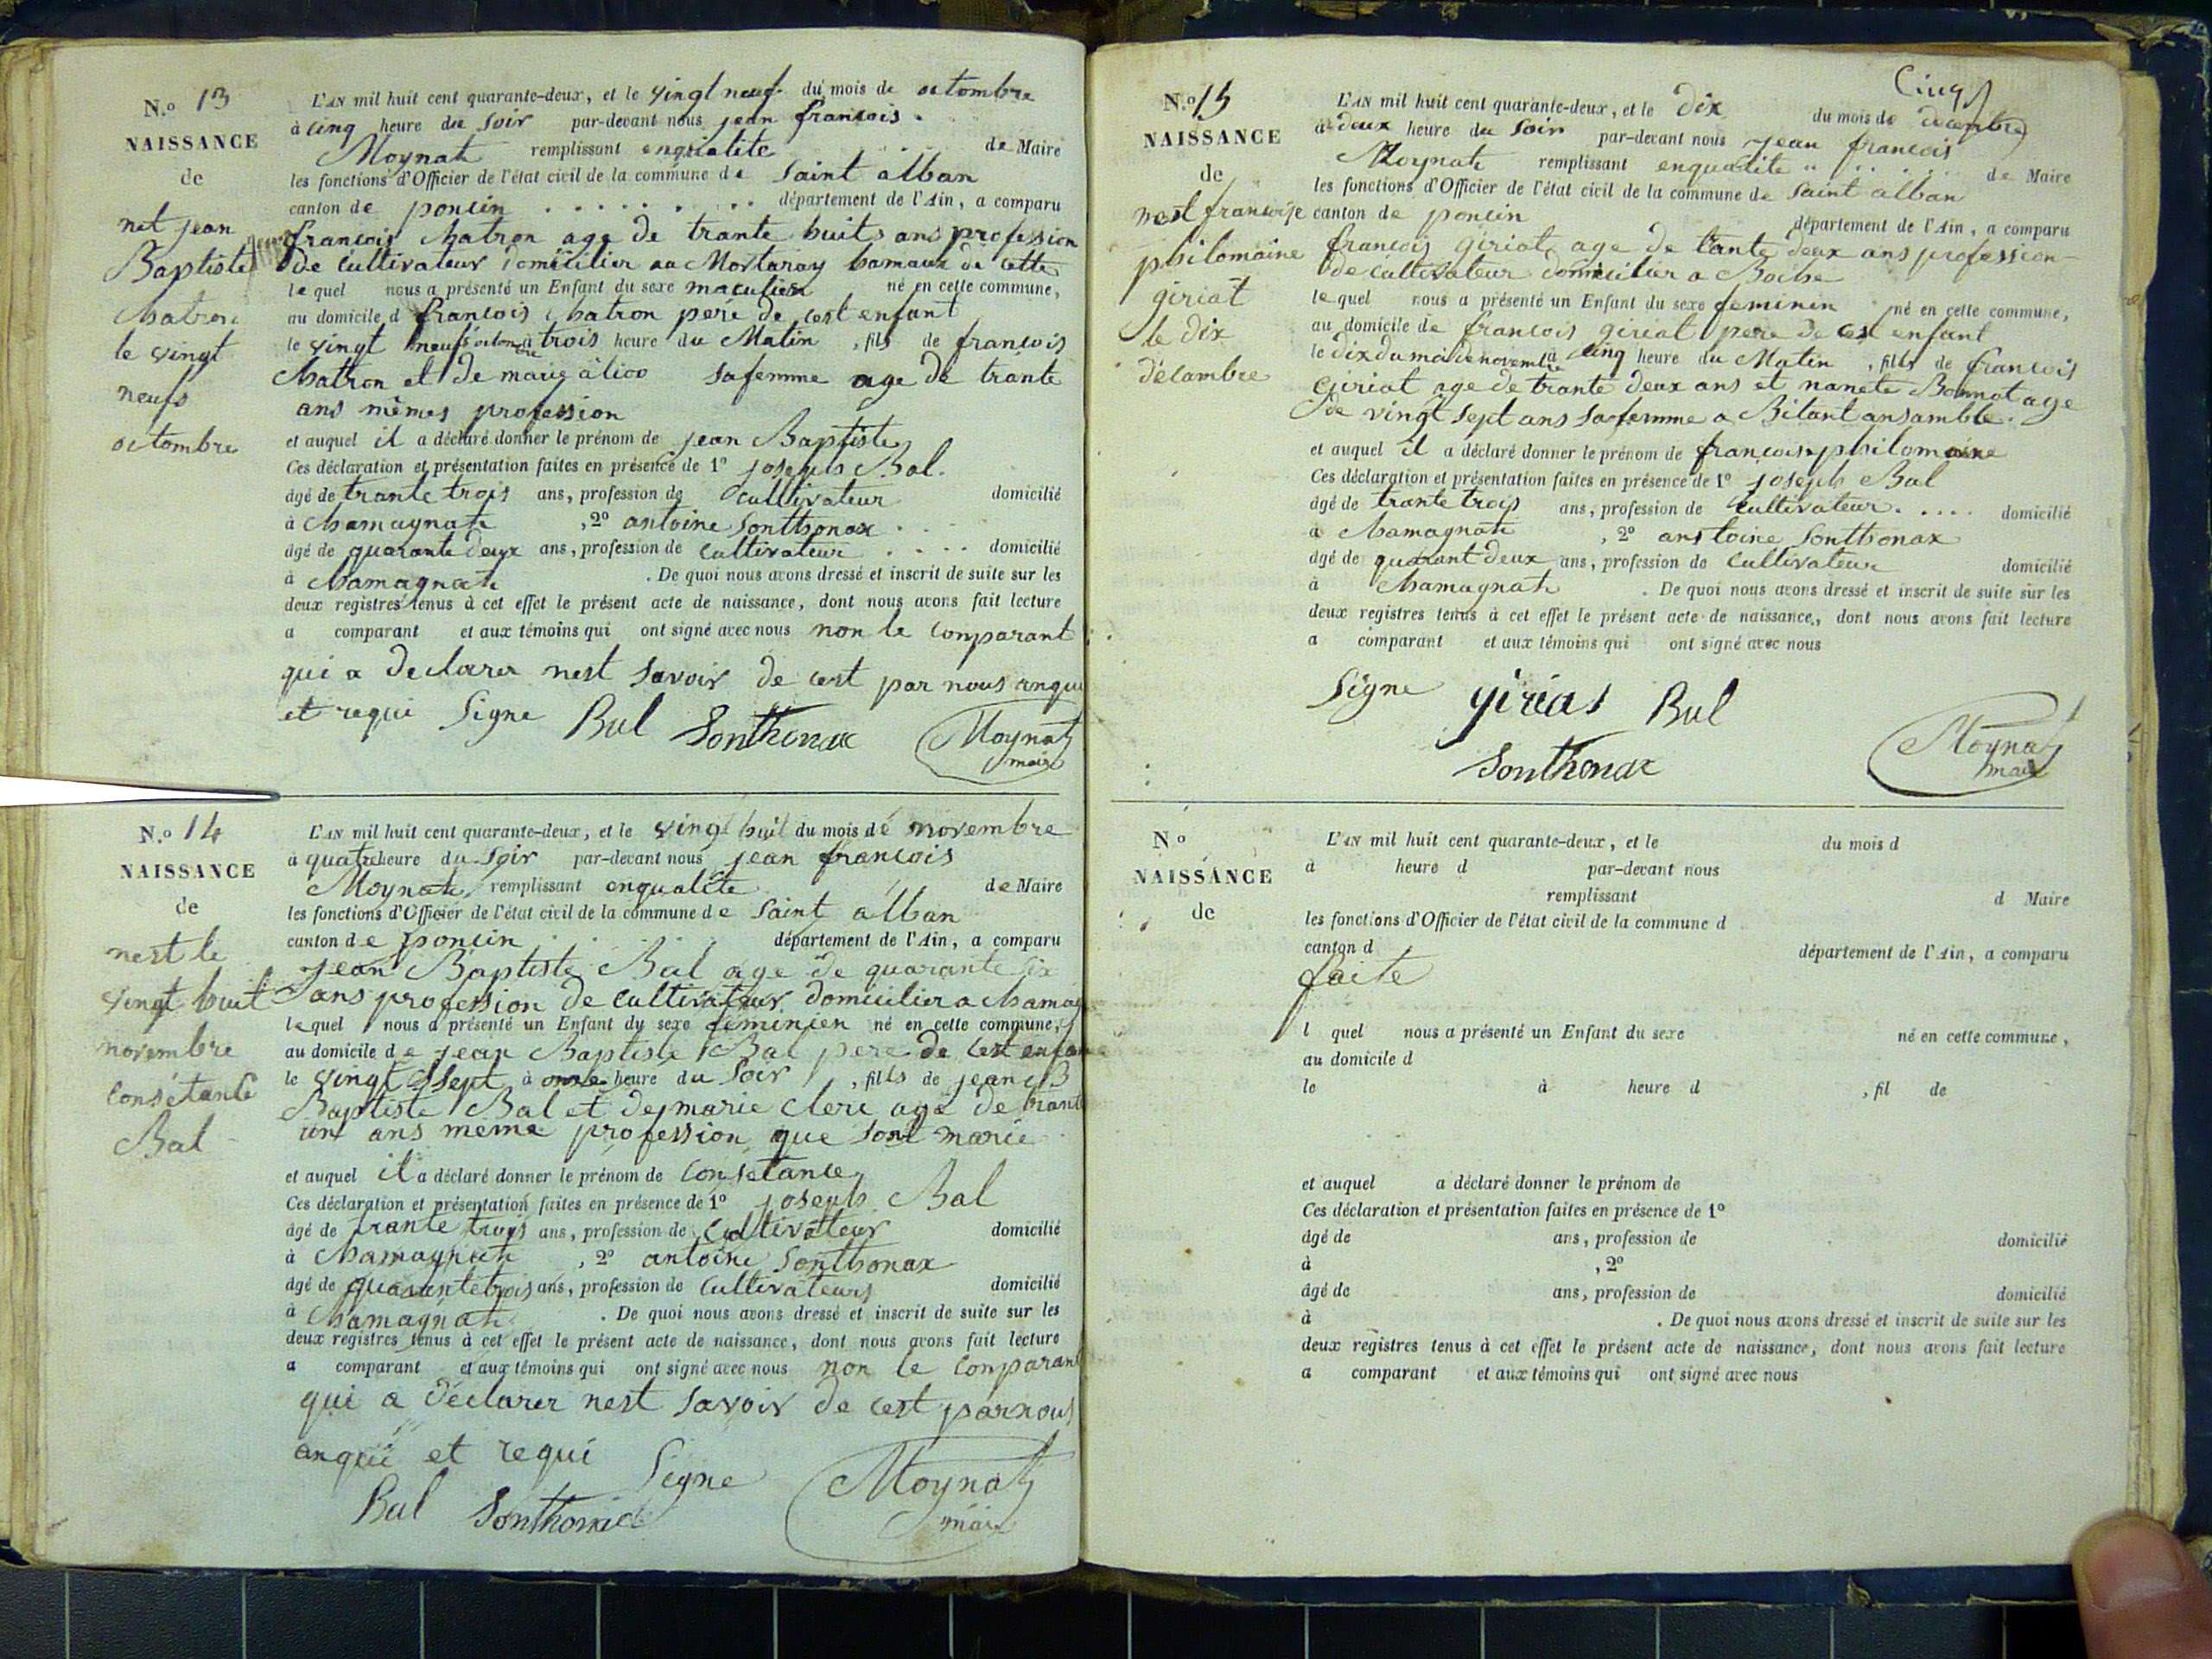 N.º 13
NAISSANCE
de
net jean
Baptiste
Chatron
le vingt
neufs
octombre
L'AN mil huit cent quarante-deux, et le vingt neuf du mois de octombre
à cinq heure du Soir par-devant nous jean francois
Moynat remplissant enqualite de Maire
les fonctions d'Officier de l'état civil de la commune de Saint alban
canton de poncin département de l'Ain, a comparu
francois Chatron age de trante huit ans profession
de Cultivateur domicilier au Mortaray hamaux de cette
lequel nous a présenté un Enfant du sexe né en cette commune,
au domicile d francois Chatron pere de cest enfant
le vingt neufs octombre à trois heure du Matin , fils de francois
Chatron et de marie safemme age de trante
ans mêmes profession
et auquel il a déclaré donner le prénom de jean Baptiste
Ces déclaration et présentation faites en présence de 1º joseph Bal
âgé de trante trois ans, profession de Cultivateur domicilié
à Chamagnat , 2º antoine Sonthonax
âgé de quarante deux ans, profession de Cultivateur domicilié
à Chamagnat . De quoi nous avons dressé et inscrit de suite sur les
deux registres tenus à cet effet le présent acte de naissance, dont nous avons fait lecture
a comparant et aux témoins qui ont signé avec nous non le Comparant
qui a declarer nest Savoir de cest par nous anqui
et requi Signe Bal Sonthonax Moynat
maire
N.º 14
NAISSANCE
de
nest le
vingt huit
novembre
Consetante
Bal
L'AN mil huit cent quarante-deux, et le vingt huit du mois de novembre
à quatre heure du Soir par-devant nous jean francois
Moynat remplissant enqualite de Maire
les fonctions d'Officier de l'état civil de la commune de Saint alban
canton de poncin département de l'Ain, a comparu
jean Baptiste Bal age de quarante six
ans profession de Cultivateur domicilier a Chamag
lequel nous a présenté un Enfant du sexe feminien né en cette commune,
au domicile de jean Baptiste Bal pere de Cest enfan
le vingt Sept à onze heure du Soir , fills de jean B
Baptiste Bal et de marie Clerc age de trante
un ans meme profession que sont marie
et auquel il a déclaré donner le prénom de Consetance
Ces déclaration et présentation faites en présence de 1º joseph Bal
âgé de trante trois ans, profession de Cultivateur domicilié
à Chamagnat , 2º antoine Sonthonax
âgé de quarantetrois ans, profession de Cultivateurs domicilié
à Chamagnat . De quoi nous avons dressé et inscrit de suite sur les
deux registres tenus à cet effet le présent acte de naissance, dont nous avons fait lecture
a comparant et aux témoins qui ont signé avec nous non le Comparant
qui a déclarer nest Savoir de cest par nous
anqui et requi Signe
Bal Sonthonax Moynat
maire
Cinq
N.º 15
NAISSANCE
de
nest francoise
philomaine
giriat
le dix
décambre
L'AN mil huit cent quarante-deux, et le dix du mois de decembre
à deux heure du Soir par-devant nous jean francois
Moynat remplissant enqualite de Maire
les fonctions d'Officier de l'état civil de la commune de Saint alban
canton de poncin département de l'Ain, a comparu
francois giriat age de tante deux ans profession
de cultivateur domicilier a Boche
lequel nous a présenté un Enfant du sexe feminin né en cette commune,
au domicile de francois giriat pere de cest enfant
le dix du moi de novembre à cinq heure du Matin , fills de francois
Giriat age de trante deux ans et nanete Bonnot age
de vingt Sept ans Safemme a Bitant ansamble.
et auquel il a déclaré donner le prénom de francoise philomaine
Ces déclaration et présentation faites en présence de 1º joseph Bal
âgé de trante trois ans, profession de Cultivateur. domicilié
à Chamagnat , 2º antoine Sonthonax
âgé de quarant deux ans, profession de Cultivateur domicilié
à Chamagnat . De quoi nous avons dressé et inscrit de suite sur les
deux registres tenus à cet effet le présent acte de naissance, dont nous avons fait lecture
a comparant et aux témoins qui ont signé avec nous
Signe girias Bal
Sonthonax Moynat
maire
Nº
NAISSANCE
de
L'AN mil huit cent quarante-deux, et le du mois d
à heure d par-devant nous
remplissant d Maire
les fonctions d'Officier de l'état civil de la commune d
canton d département de l'Ain, a comparu
faite
l quel nous a présenté un Enfant du sexe né en cette commune,
au domicile d
le à heure d , fil de
et auquel a déclaré donner le prénom de
Ces déclaration et présentation faites en présence de 1º
âgé de ans, profession de domicilié
à , 2º
âgé de ans, profession de domicilié
à . De quoi nous avons dressé et inscrit de suite sur les
deux registres tenus à cet effet le présent acte de naissance, dont nous avons fait lecture
a comparant et aux témoins qui ont signé avec nous